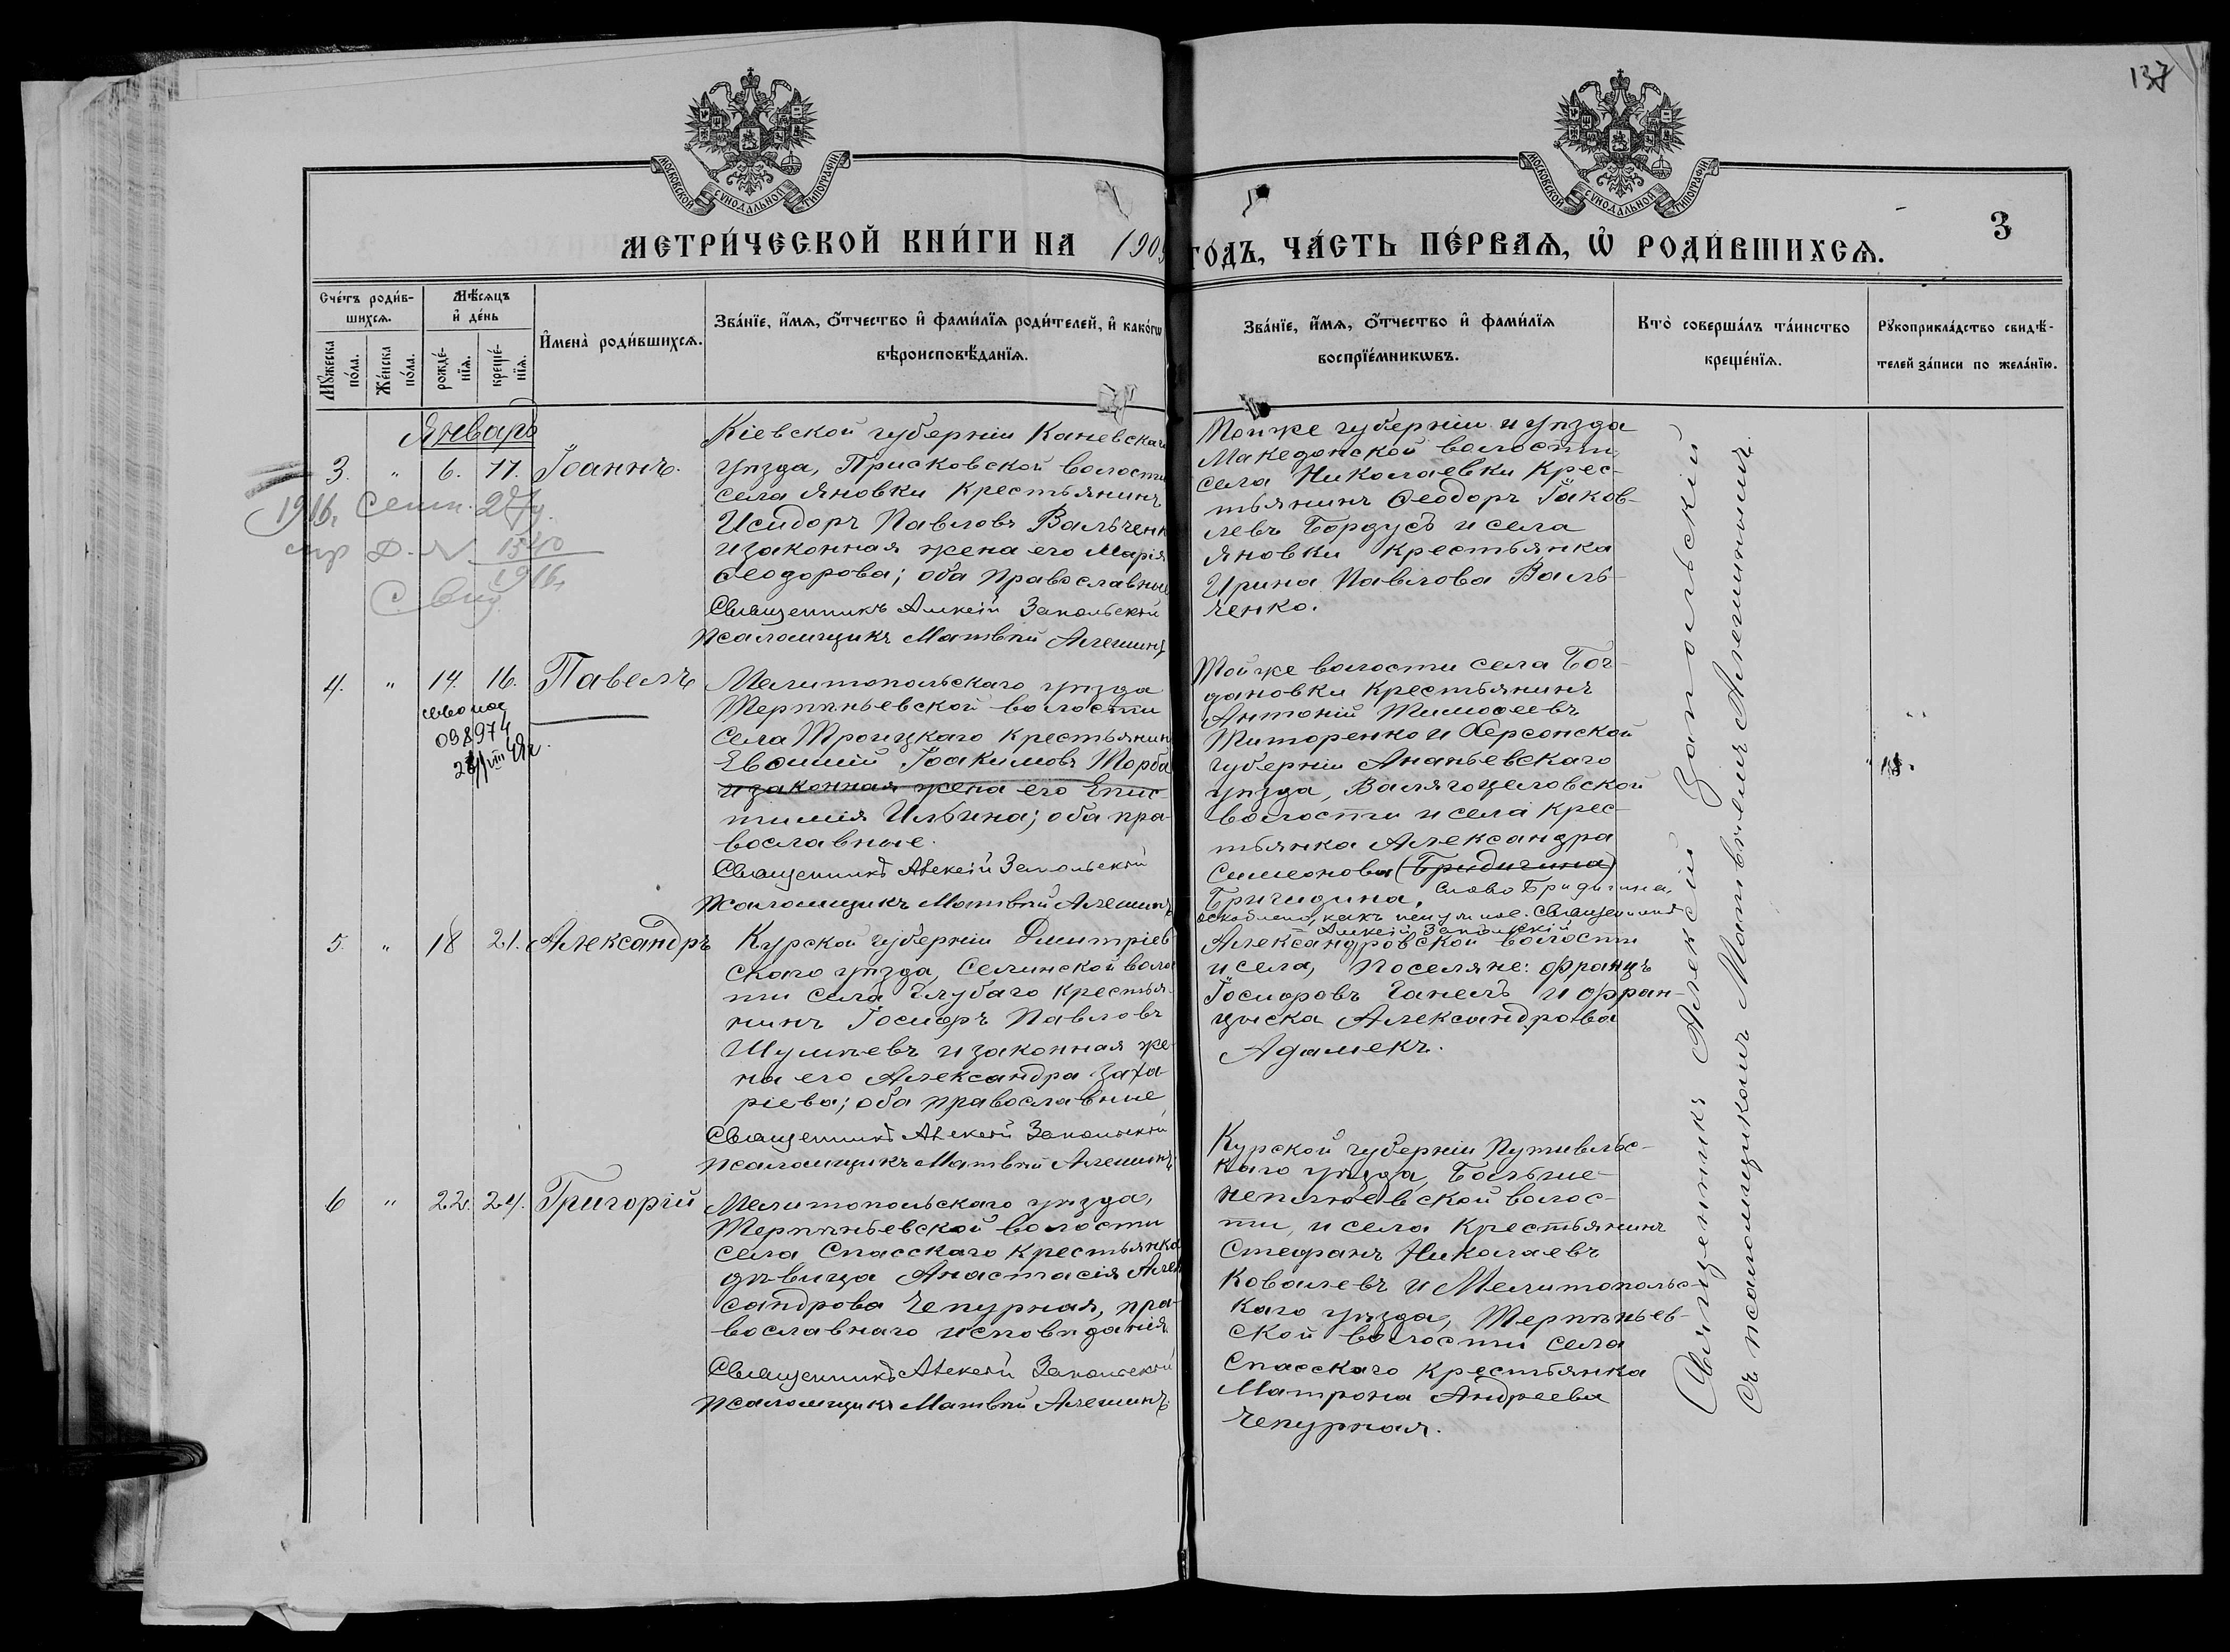 137
МОСКОВСКОЙ СѴНОДАЛЬНОЙ ТИПОГРАФІИ
МОСКОВСКОЙ СѴНОДАЛЬНОЙ ТИПОГРАФІИ
МЕТРИ́ЧЕСКОЙ КНИ́ГИ НА 1909
ГО́ДЪ, ЧА́СТЬ ПЕ́РВАѦ, Ѡ҆ РОДИ́ВШИХСѦ.
3
Сче́тъ роди́в-
шихсѧ.
Мꙋ́жеска
по́ла.
Же́нска
по́ла.
Мѣ́сѧцъ
и҆ де́нь
рожде́-
нїѧ.
креще́-
нїѧ.
И҆мена̀ роди́вшихсѧ.
Зва́нїе, и҆́мѧ, ѻ҆́тчество и҆ фами́лїѧ роди́телей, и҆ како́гѡ
вѣроисповѣ́данїѧ.
Зва́нїе, и҆́мѧ, ѻ҆́тчество и҆ фами́лїѧ
воспрїе́мникѡвъ.
Кто̀ соверша́лъ та́инство
креще́нїѧ.
Рꙋкоприкла́дство свидѣ́-
телей за́писи по жела́нїю.
Январь
3. " 6. 11. Іоаннъ.
1916 г. Сент. 27 д.
Кіевской губерніи Каневскаго
уѣзда, Присковской волости
села Яновки крестьянинъ
Исидоръ Павловъ Вальченк
и законная жена его Марія
Ѳеодорова; оба православные
Священникъ Алексій Запольскій
Псаломщикъ Матвѣй Алешинъ
Той же губерніи и уѣзда
Македонской волости,
села Николаевки крес-
тьянинъ Ѳеодоръ Іаков-
левъ Бордусъ и села
Яновки крестьянка
Ирина Павлова Валь-
ченко.
4. " 14. 16. Павелъ
098974
Мелитопольскаго уѣзда
Терпѣньевской волости
села Троицкаго крестьянин
Евѳимій Іоакимовъ Торба
и законная жена его Епис-
тимія Ильина; оба пра-
вославные.
Священникъ Алексій Запольскій
Псаломщикъ Матвѣй Алешинъ
Той же волости села Бог-
дановки крестьянинъ
Антоній Тимоѳеевъ
Титоренко и Херсонской
губерніи Ананьевскаго
уѣзда, Валягоцуловской
волости и села крес-
тьянка Александра
Симеонова (Бридигина)
Бригидина. Слово Бридигина,
Священникъ
Алексій Запольскій
5. " 18 21. Александръ
Курской губерніи Дмитріев
скаго уѣзда, Селинской волос
ти села Глубаго крестья-
нинъ Іосифъ Павловъ
Шумѣевъ и законная же-
на его Александра Заха-
ріева; оба православные
Священникъ Алексій Запольскій
Псаломщикъ Матвѣй Алешинъ
Александровской волости
и села, поселяне: Францъ
Іосифовъ Ганелъ и Фран-
циска Александрова
Адамекъ.
6 " 22. 24. Григорій
Мелитопольскаго уѣзда,
Терпѣньевской волости
села Спасскаго крестьянка
дѣвица Анастасія Алек
сандрова Чепурная, пра-
вославнаго исповѣданія.
Священникъ Алексій Запольскій
Псаломщикъ Матвѣй Алешинъ
Курской губерніи Путивльс-
каго уѣзда, Больше-
неплюевской волос-
ти, и села крестьянинъ
Стефанъ Николаевъ
Ковалевъ и Мелитопольс-
каго уѣзда, Терпѣньев-
ской волости села
Спасскаго крестьянка
Матрона Андреева
Чепурная.
Священникъ Алексій Запольскій
съ псаломщикомъ Матвѣемъ Алешинымъ.